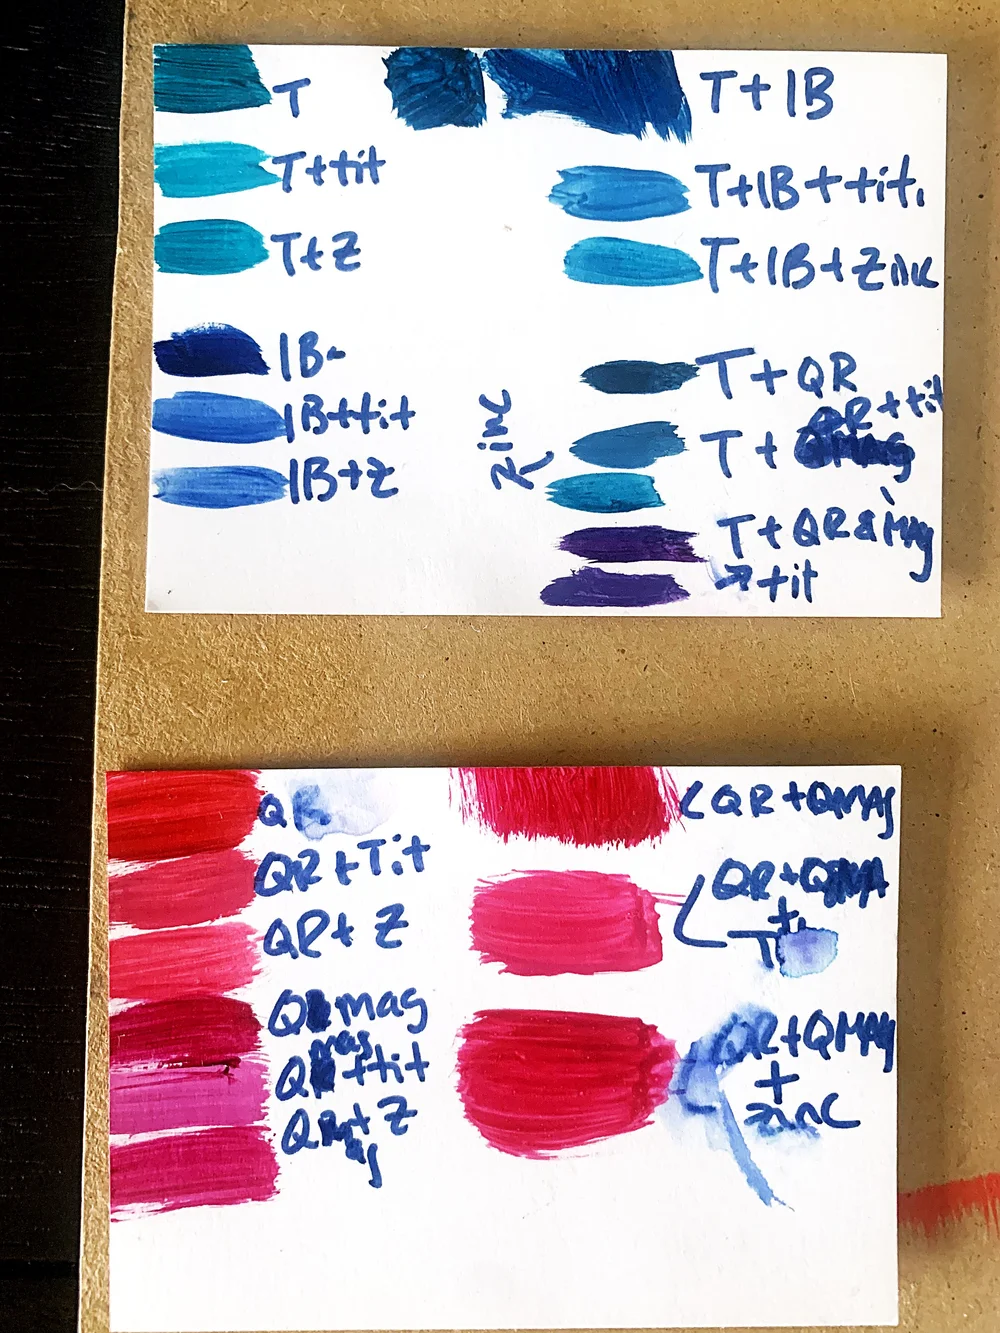 T
T+tit
T+Z
IB
IB+tit
IB+Z
T+IB
T+IB+tit.
T+IB+Zinc
T+QR
QR+tit
T+
zinc
T+QR&MAG
→+tit
QR
QR+Tit
QR+Z
Q mag
mag
Q +tit
Q + Z
QR+QMAG
QR+QMA
+
T
QR+QMAG
+
zinc